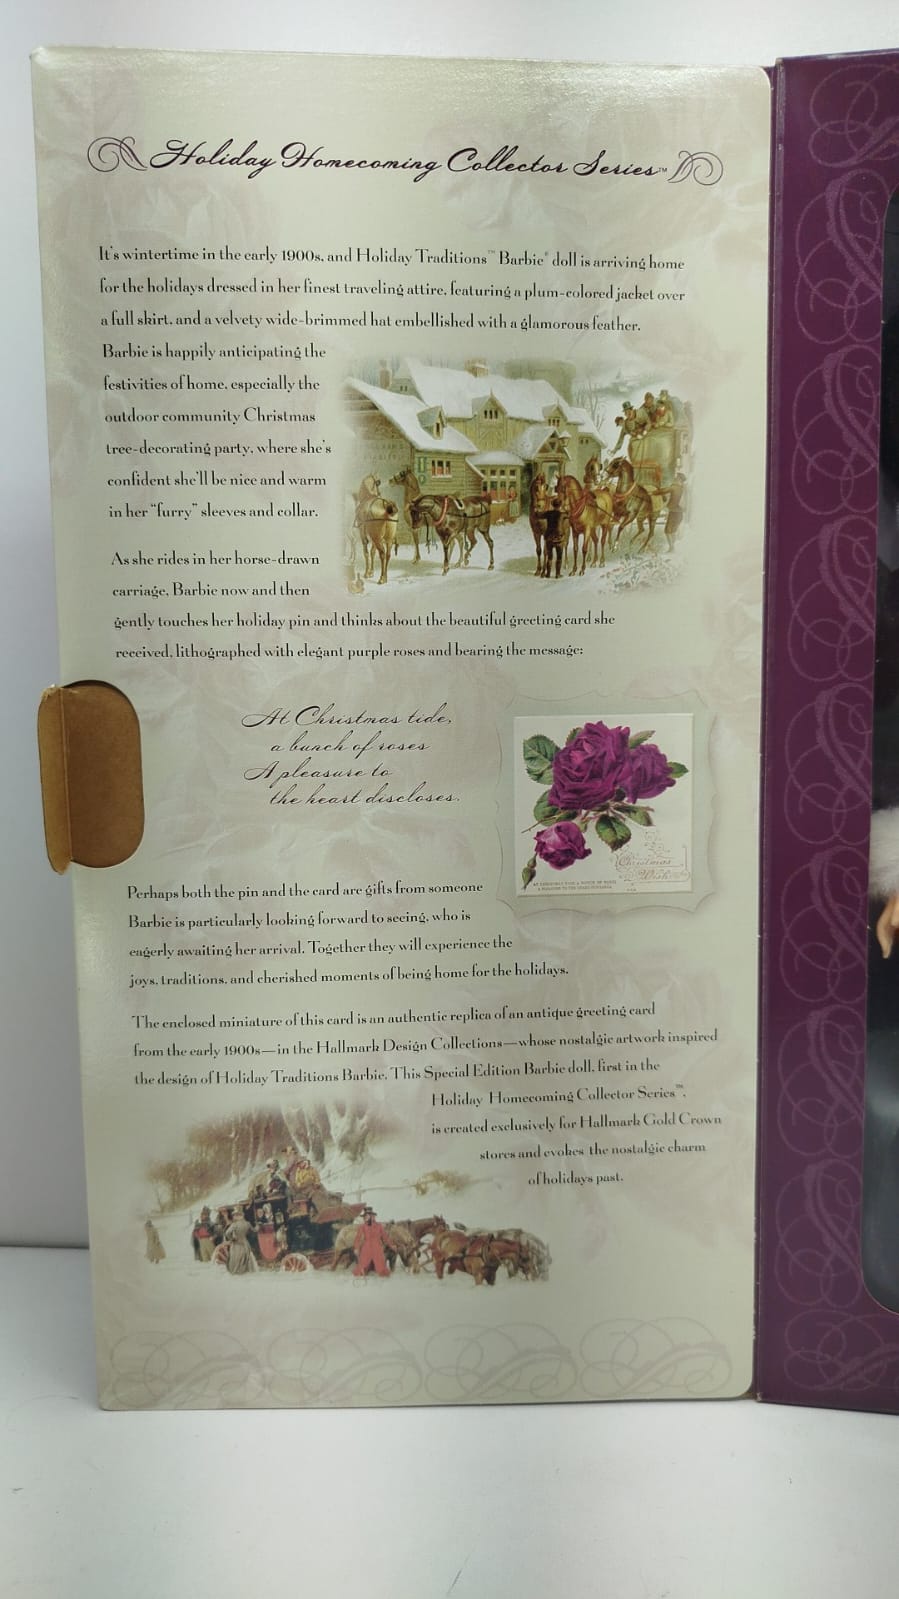 Holiday Homecoming Collector Series™
It's wintertime in the early 1900s, and Holiday Traditions™ Barbie® doll is arriving home
for the holidays dressed in her finest traveling attire, featuring a plum-colored jacket over
a full skirt, and a velvety wide-brimmed hat embellished with a glamorous feather.
Barbie is happily anticipating the
festivities of home, especially the
outdoor community Christmas
tree-decorating party, where she's
confident she'll be nice and warm
in her "furry" sleeves and collar.
As she rides in her horse-drawn
carriage, Barbie now and then
gently touches her holiday pin and thinks about the beautiful greeting card she
received, lithographed with elegant purple roses and bearing the message:
At Christmas tide,
a bunch of roses
A pleasure to
the heart discloses.
Christmas
Wish
AT CHRISTMAS TIDE, A BUNCH OF ROSES
A PLEASURE TO THE HEART DISCLOSES
Perhaps both the pin and the card are gifts from someone
Barbie is particularly looking forward to seeing, who is
eagerly awaiting her arrival. Together they will experience the
joys, traditions, and cherished moments of being home for the holidays.
The enclosed miniature of this card is an authentic replica of an antique greeting card
from the early 1900s—in the Hallmark Design Collections—whose nostalgic artwork inspired
the design of Holiday Traditions Barbie. This Special Edition Barbie doll, first in the
Holiday Homecoming Collector Series™,
is created exclusively for Hallmark Gold Crown
stores and evokes the nostalgic charm
of holidays past.